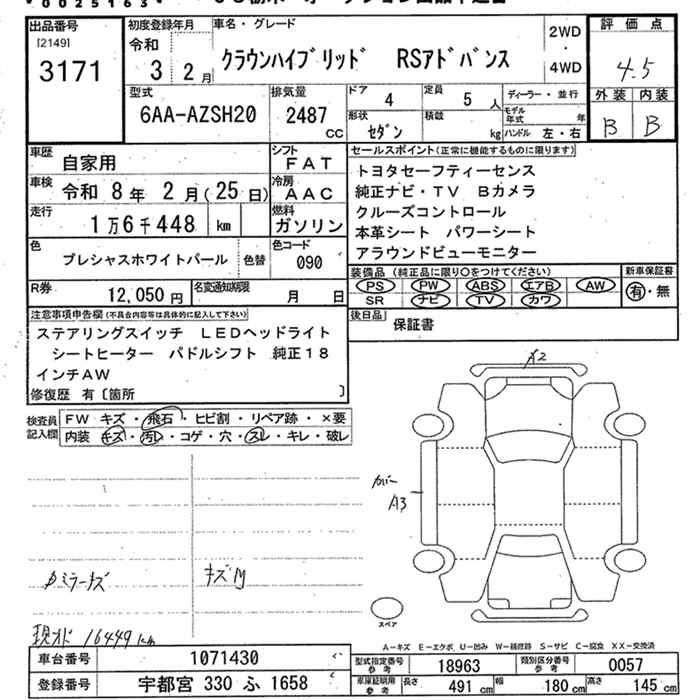 *0025163*
出品番号
[2149]
3171
初度登録年月
令和
3 2月
車名・グレード
クラウンハイブリッド RSアドバンス
2WD
・
4WD
評価点
4.5
外装 内装
B B
型式
6AA-AZSH20
排気量
2487
CC
ドア 4
定員 5 人
形状 セダン
積載 kg
ディーラー・並行
モデル年式 年
ハンドル 左・右
車歴 自家用
シフト FAT
車検 令和 8年 2月(25日)
冷房 AAC
走行 1万6千448 km
燃料 ガソリン
色 プレシャスホワイトパール 色替
色コード 090
R券 12,050円
名変通知期限 月 日
セールスポイント(正常に機能するものに限ります)
トヨタセーフティーセンス
純正ナビ・TV Bカメラ
クルーズコントロール
本革シート パワーシート
アラウンドビューモニター
装備品(純正品に限り○をつけてください)
PS PW ABS エアB AW
SR ナビ TV カワ
新車保証書
有・無
後日品 保証書
注意事項申告欄(不具合内容等は具体的に記入して下さい)
ステアリングスイッチ LEDヘッドライト
シートヒーター パドルシフト 純正18
インチAW
修復歴 有〔箇所 〕
検査員記入欄
FW キズ・飛石・ヒビ割・リペア跡・×要
内装 キズ・汚レ・コゲ・穴・スレ・キレ・破レ
A2
カバー
A3
ミラーキズ
キズM
現オド 16449km
スペア
A-キズ E-エクボ U-凹み W-補修跡 S-サビ C-腐食 XX-交換済
車台番号 1071430
型式指定番号参考 18963
類別区分番号参考 0057
登録番号 宇都宮 330 ふ 1658
車庫証明用参考 長さ 491 cm 幅 180 cm 高さ 145 cm